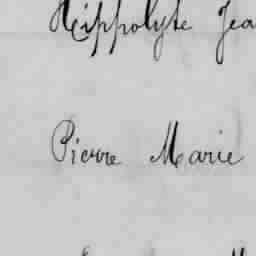 Hippolyte Jea
Pierre Marie